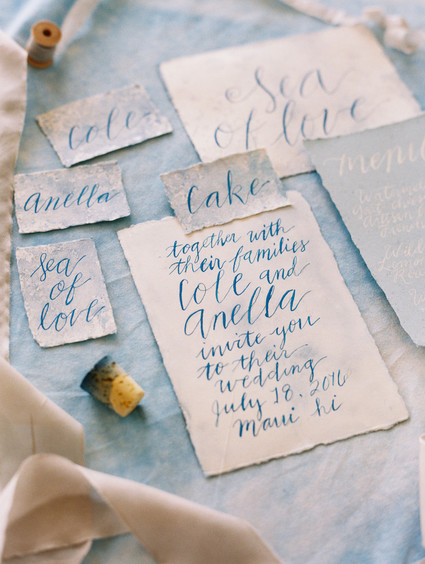 Sea
of love
Cole
Anella
Cake
Menu
Sea
of
love
together with
their families
Cole and
Anella
invite you
to their
wedding
July 18, 2016
Maui hi